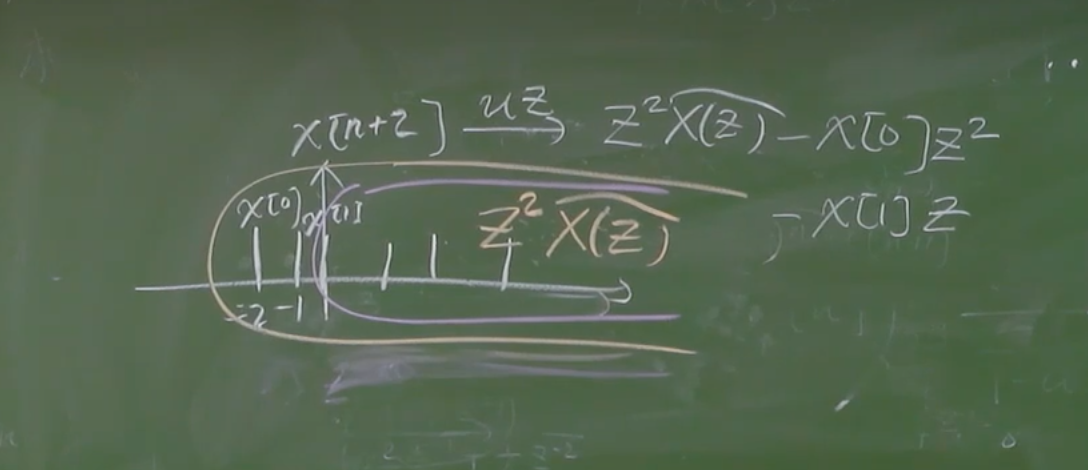 x[n+2] \xrightarrow{uZ} Z^2 \widehat{X(Z)} - x[0]Z^2
- x[1]Z
x[0] x[1]
Z^2 \widehat{X(Z)}
-2 -1